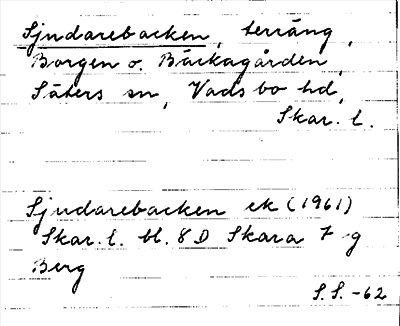 Sjudarebacken, terräng,
Borgen o. Bäckagården,
Säters sn, Vadsbo hd,
Skar. l.
Sjudarebacken ek (1961)
Skar. l. bl. 8 D Skara 7 g
Berg
S. S. -62